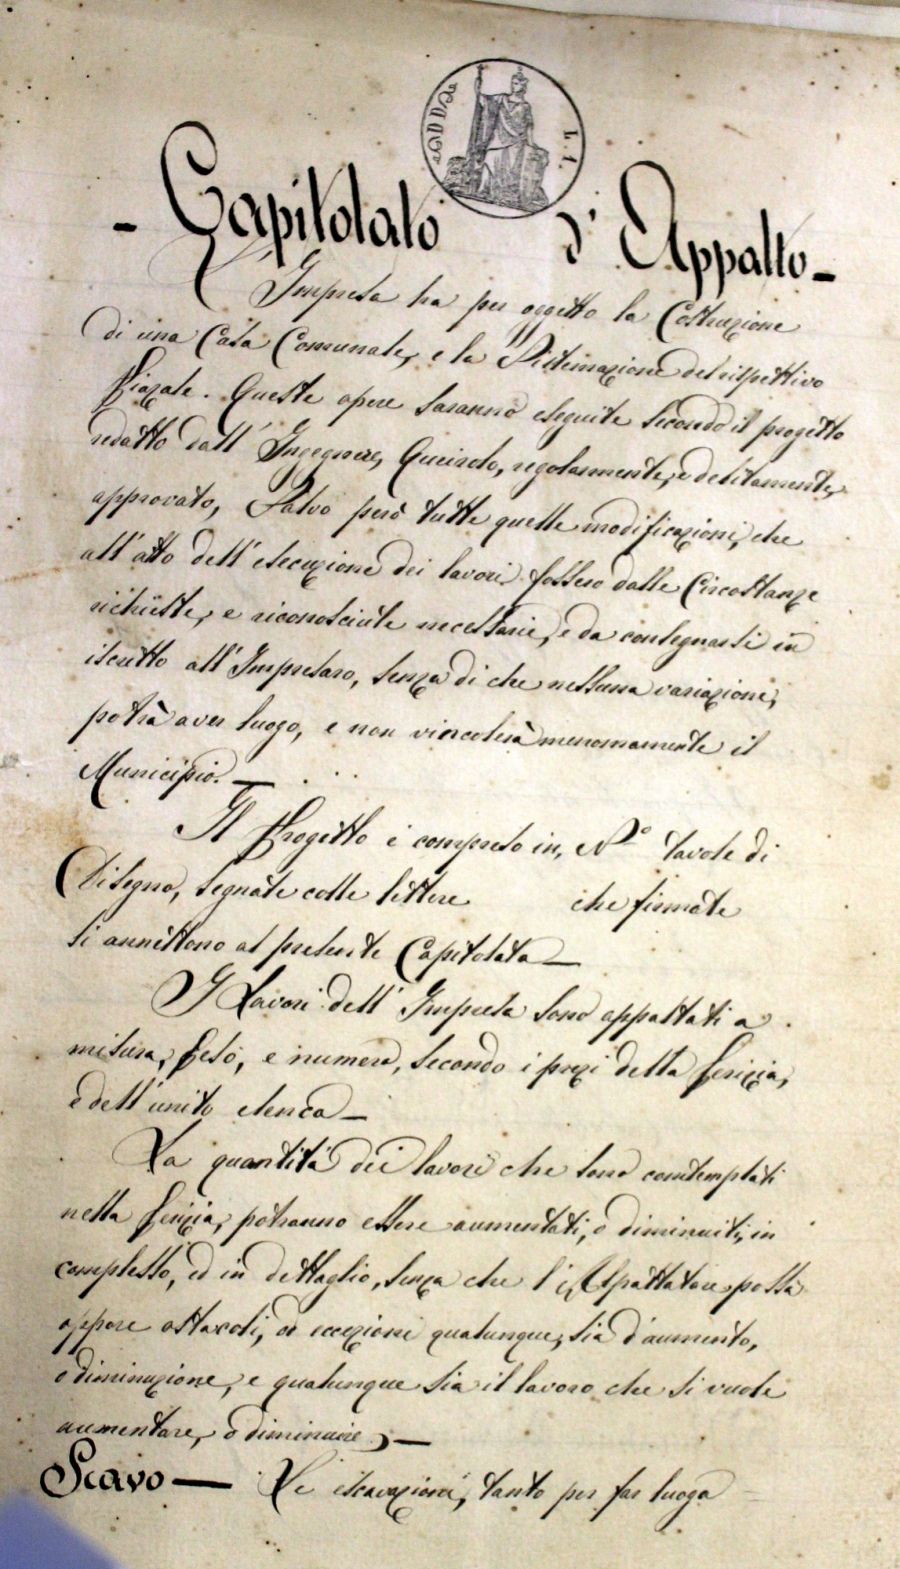 L. 1.
- Capitolato d'Appalto -
Impresa ha per oggetto la Costruzione
di una Casa Comunale, e la Sistemazione del rispettivo
Piazale. Queste opere saranno eseguite secondo il progetto
redatto dall'Ingegnere, Queirolo, regolarmente, e debitamente,
approvato, Salvo però tutte quelle modificazioni, che
all'atto dell'esecuzione dei lavori fossero dalle Circostanze
richieste, e riconosciute necessarie, e da consegnarsi in
iscritto all'Impresaro, senza di che nessuna variazione,
potrà aver luogo, e non vincolerà menomamente il
Municipio. —
Il Progetto è compreso in, N.° tavole di
Disegno, segnate colle lettere che firmate
si annettono al presente Capitolata —
I Lavori dell'Impresa sono appaltati a
misura, peso, e numero, secondo i prezi della perizia,
e dell'unito elenco —
La quantità dei lavori che sono contemplati
nella perizia, potranno essere aumentati, o diminuiti, in
complesso, ed in dettaglio, senza che l' Appaltatore possa
oppore ostacoli, od eccezioni qualunque, sia d'aumento,
o diminuzione, e qualunque sia il lavoro che si vuole
aumentare, o diminuire, —
Scavo — Le escavazioni, tanto per far luogo